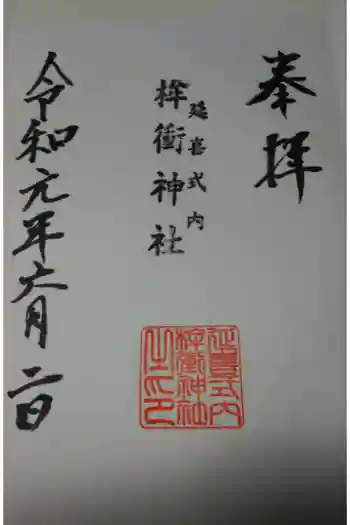 奉拝
延喜式内
桙衝神社
令和元年六月二日
延喜式内
桙衝神社
之印